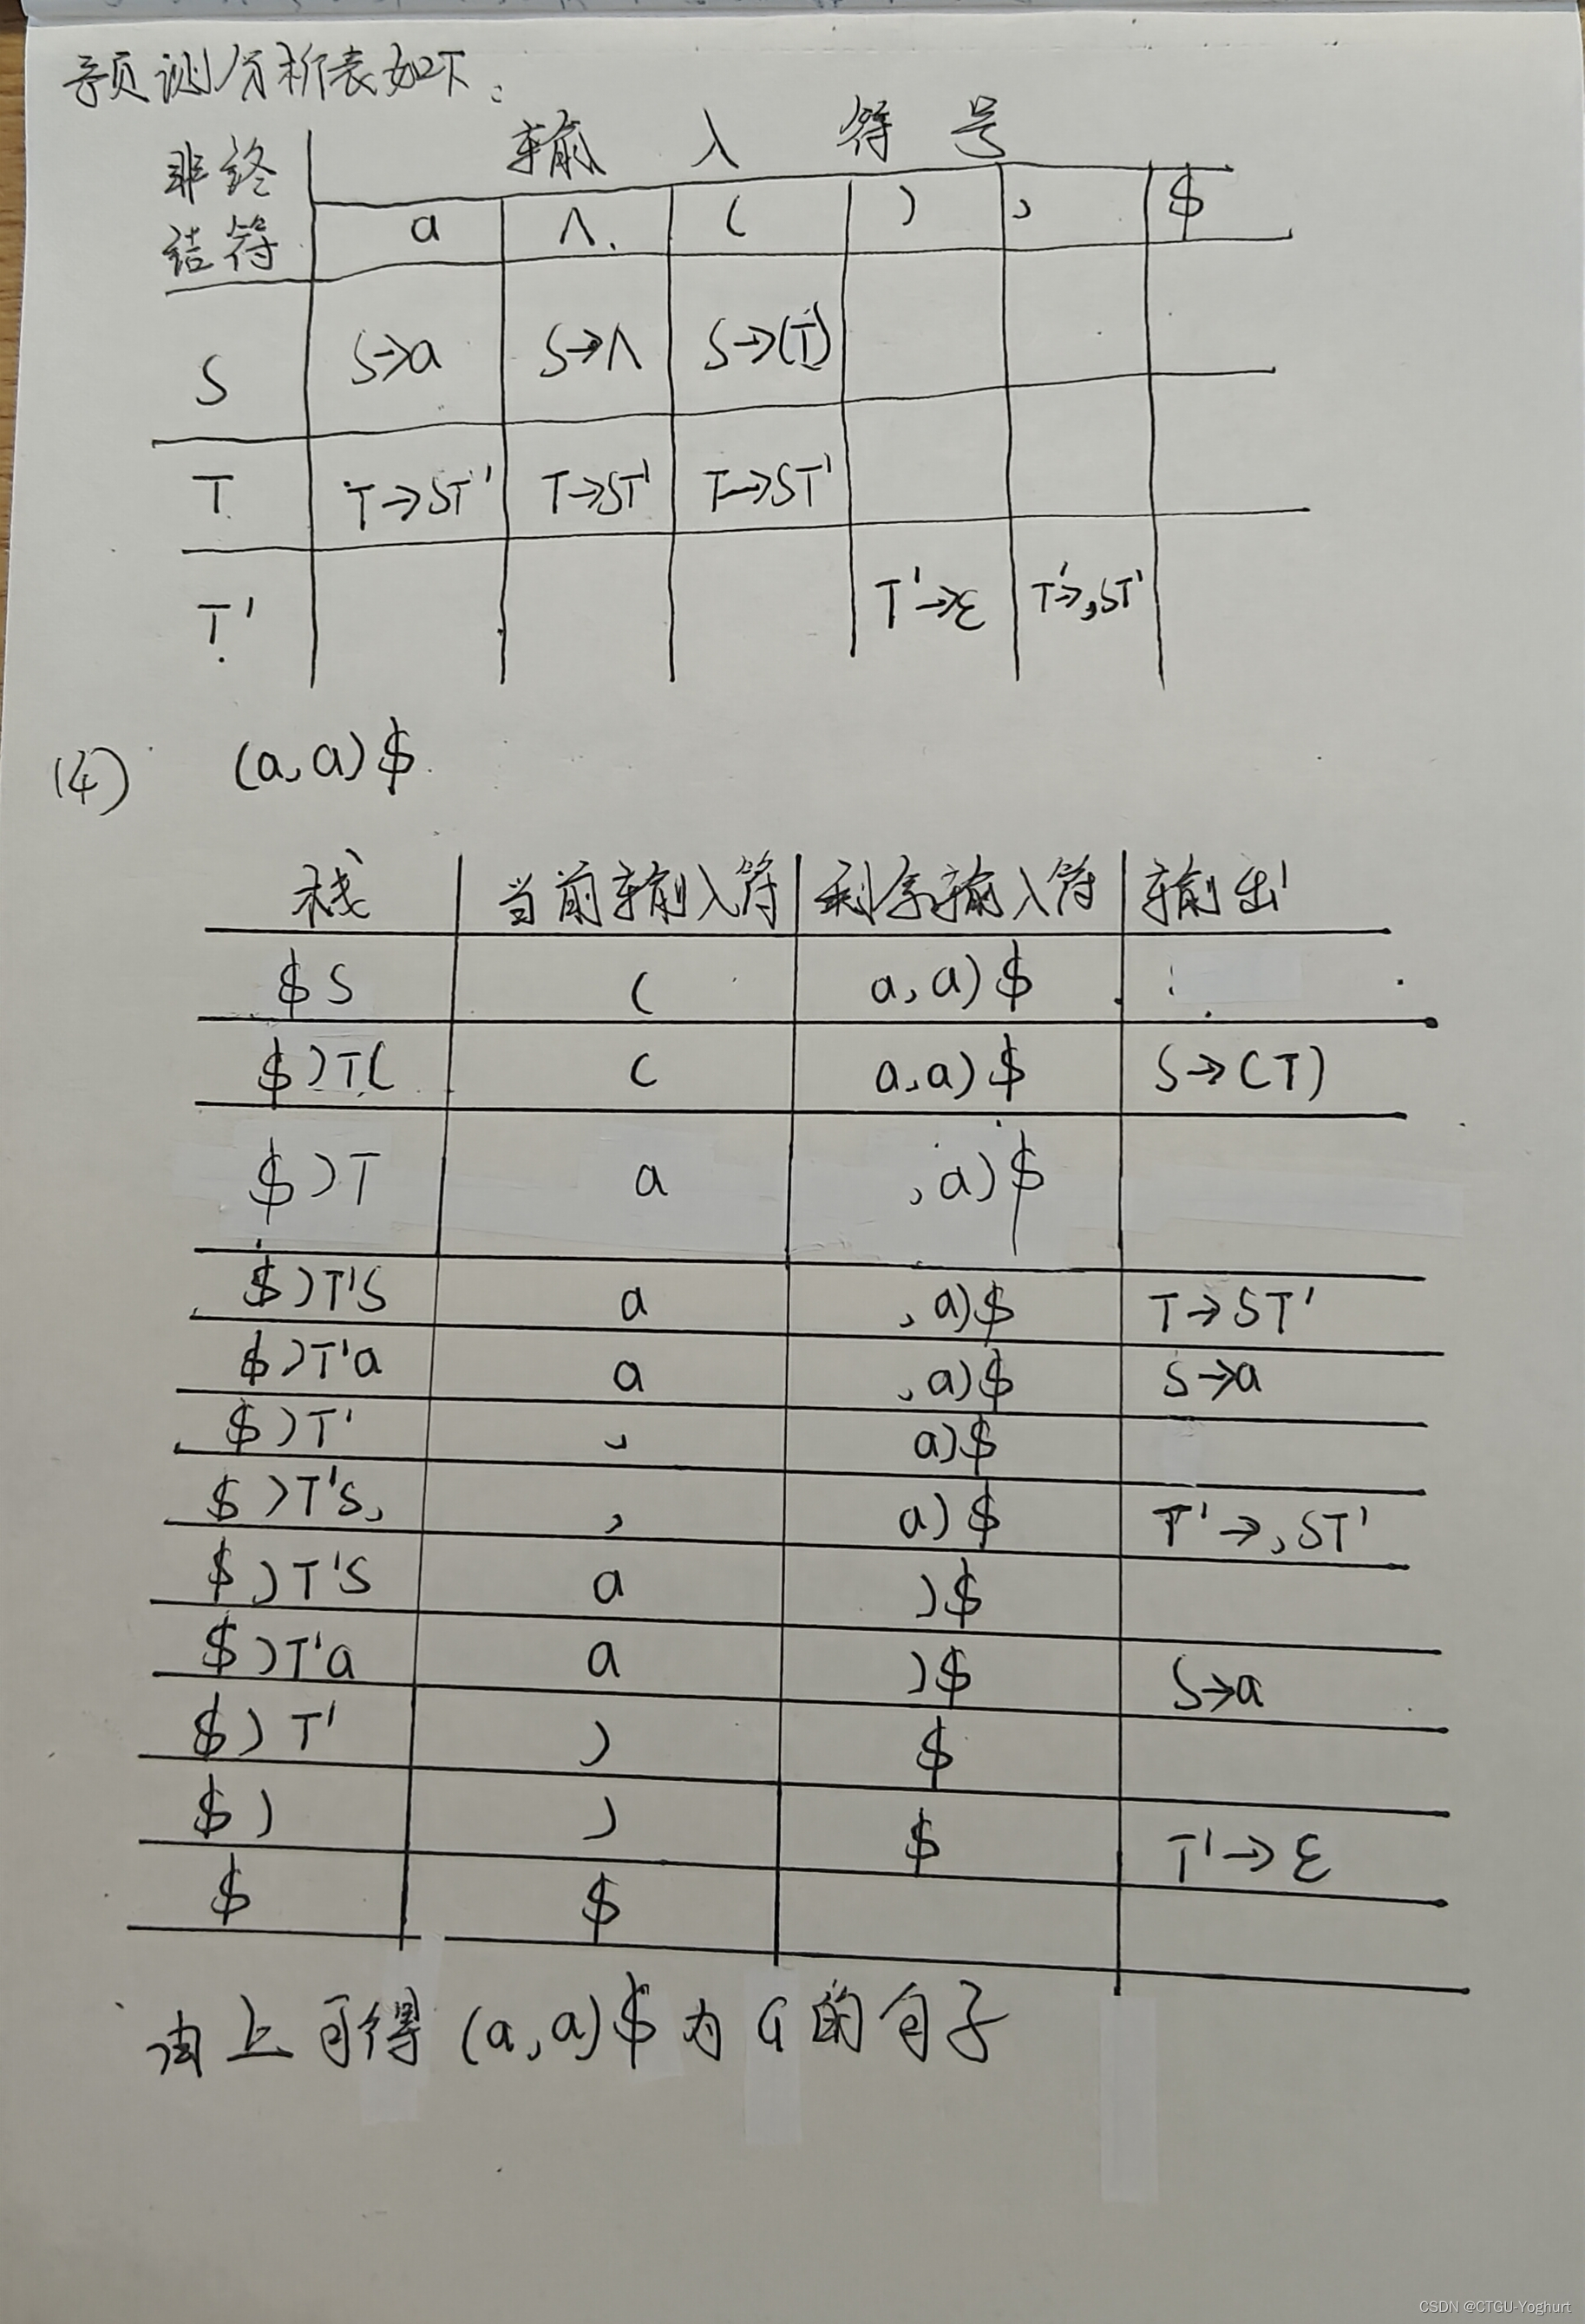 预测分析表如下:
非终结符 输入符号
a ∧ ( ) , $
S S→a S→∧ S→(T)
T T→ST' T→ST' T→ST'
T' T'→ε T'→,ST'
(4) (a,a)$
栈 当前输入符 剩余输入符 输出
$S ( a,a)$
$)T( ( a,a)$ S→(T)
$)T a ,a)$
$)T'S a ,a)$ T→ST'
$)T'a a ,a)$ S→a
$)T' , a)$
$)T'S, , a)$ T'→,ST'
$)T'S a )$
$)T'a a )$ S→a
$)T' ) $
$) ) $ T'→ε
$ $
由上可得(a,a)$为G的句子
CSDN @CTGU-Yoghurt